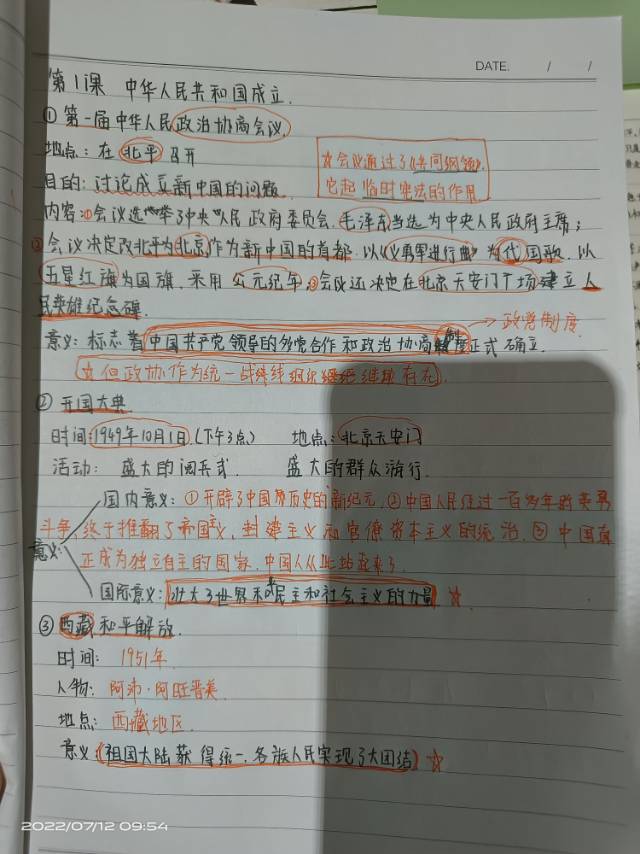 DATE. / /
第1课 中华人民共和国成立.
①第一届中华人民政治协商会议
地点:在北平召开
☆会议通过了《共同纲领》,
它起临时宪法的作用
目的:讨论成立新中国的问题.
内容:①会议选举了中央人民政府委员会,毛泽东当选为中央人民政府主席;
②会议决定改北平为北京,作为新中国的首都,以《义勇军进行曲》为代国歌,以
五星红旗为国旗,采用公元纪年,③会议还决定在北京天安门广场建立人
民英雄纪念碑.
→政党制度.
意义:标志着中国共产党领导的多党合作和政治协商制度正式确立.
☆但政协作为统一战线组织继续存在.
②开国大典.
时间:1949年10月1日.(下午3点) 地点:北京天安门
活动:盛大的阅兵式. 盛大的群众游行.
国内意义:①开辟了中国历史的新纪元,②中国人民经过一百多年的英勇
斗争,终于推翻了帝国主义,封建主义和官僚资本主义的统治,③中国真
意义:
正成为独立自主的国家,中国人从此站起来了.
国际意义:壮大了世界和平民主和社会主义的力量 ☆
③西藏和平解放.
时间:1951年
人物:阿沛·阿旺晋美.
地点:西藏地区.
意义:(祖国大陆获得统一,各族人民实现了大团结)☆
2022/07/12 09:54